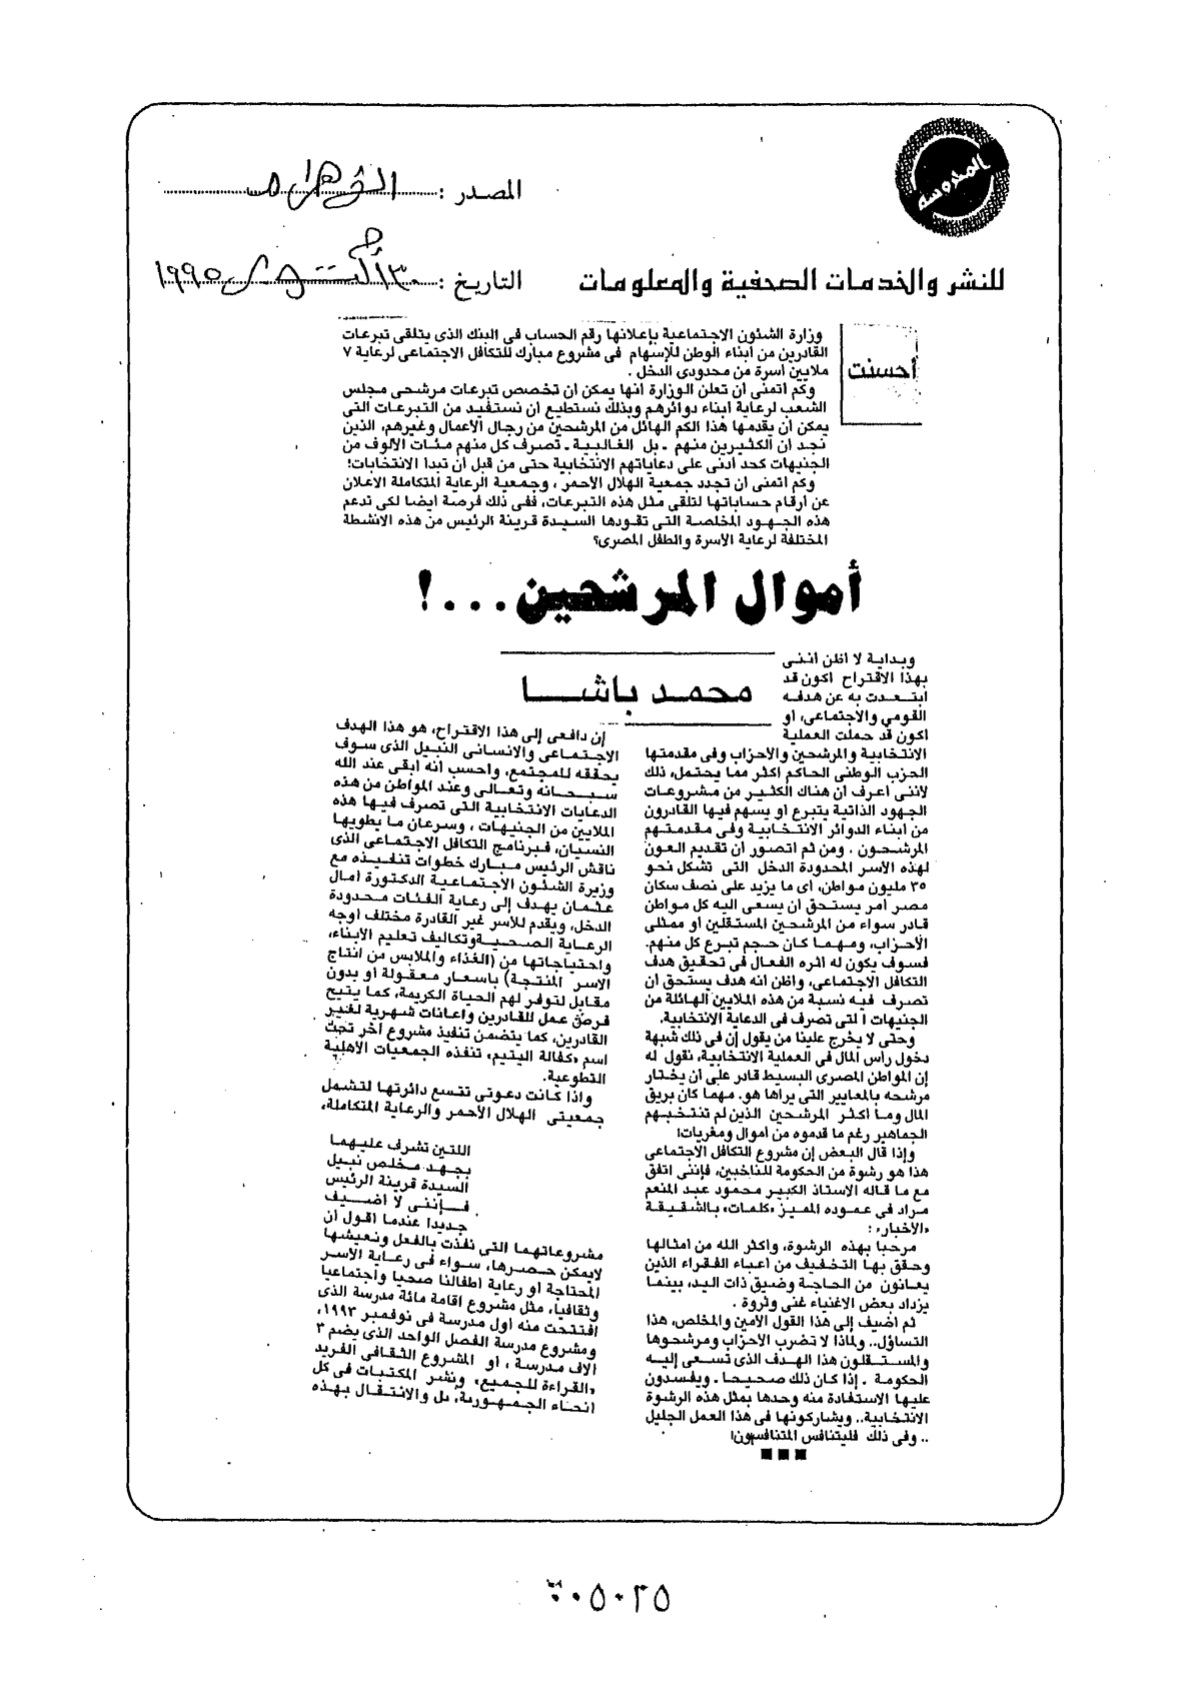 المدروسة
المصدر : الأهرام
التاريخ : ٣٠ أكتوبر ١٩٩٥
للنشر والخدمات الصحفية والمعلومات
أحسنت
وزارة الشئون الاجتماعية بإعلانها رقم الحساب فى البنك الذى يتلقى تبرعات
القادرين من أبناء الوطن للإسهام فى مشروع مبارك للتكافل الاجتماعى لرعاية ٧
ملايين أسرة من محدودى الدخل .
وكم اتمنى أن تعلن الوزارة انها يمكن ان تخصص تبرعات مرشحى مجلس
الشعب لرعاية ابناء دوائرهم وبذلك نستطيع ان نستفيد من التبرعات التى
يمكن أن يقدمها هذا الكم الهائل من المرشحين من رجال الأعمال وغيرهم، الذين
نجد ان الكثيرين منهم ـ بل الغالبية ـ تصرف كل منهم مئات الالوف من
الجنيهات كحد أدنى على دعاياتهم الانتخابية حتى من قبل أن تبدا الانتخابات!
وكم اتمنى ان تجدد جمعية الهلال الأحمر ، وجمعية الرعاية المتكاملة الاعلان
عن ارقام حساباتها لتلقى مثل هذه التبرعات، ففى ذلك فرصة ايضا لكى تدعم
هذه الجهود المخلصة التى تقودها السيدة قرينة الرئيس من هذه الانشطة
المختلفة لرعاية الأسرة والطفل المصرى؟
أموال المرشحين...!
محمد باشا
وبداية لا اظن اننى
بهذا الاقتراح اكون قد
ابتعدت به عن هدفه
القومى والاجتماعى، أو
اكون قد حملت العملية
الانتخابية والمرشحين والاحزاب وفى مقدمتها
الحزب الوطنى الحاكم اكثر مما يحتمل، ذلك
لاننى اعرف ان هناك الكثير من مشروعات
الجهود الذاتية يتبرع او يسهم فيها القادرون
من ابناء الدوائر الانتخابية وفى مقدمتهم
المرشحون . ومن ثم اتصور ان تقديم العون
لهذه الأسر المحدودة الدخل التى تشكل نحو
٣٥ مليون مواطن، اى ما يزيد على نصف سكان
مصر أمر يستحق ان يسعى اليه كل مواطن
قادر سواء من المرشحين المستقلين أو ممثلى
الأحزاب، ومهما كان حجم تبرع كل منهم.
فسوف يكون له اثره الفعال فى تحقيق هدف
التكافل الاجتماعى، واظن انه هدف يستحق ان
تصرف فيه نسبة من هذه الملايين الهائلة من
الجنيهات التى تصرف فى الدعاية الانتخابية.
وحتى لا يخرج علينا من يقول إن فى ذلك شبهة
دخول راس المال فى العملية الانتخابية، نقول له
إن المواطن المصرى البسيط قادر على ان يختار
مرشحه بالمعايير التى يراها هو. مهما كان بريق
المال وما أكثر المرشحين الذين لم تنتخبهم
الجماهير رغم ما قدموه من أموال ومغريات!
وإذا قال البعض إن مشروع التكافل الاجتماعى
هذا هو رشوة من الحكومة للناخبين، فإننى اتفق
مع ما قاله الاستاذ الكبير محمود عبد المنعم
مراد فى عموده المميز «كلمات» بالشقيقة
«الأخبار» :
مرحبا بهذه الرشوة، واكثر الله من امثالها
وحقق بها التخفيف من أعباء الفقراء الذين
يعانون من الحاجة وضيق ذات اليد، بينما
يزداد بعض الاغنياء غنى وثروة .
ثم اضيف إلى هذا القول الأمين والمخلص، هذا
التساؤل.. ولماذا لا تضرب الأحزاب ومرشحوها
والمستقلون هذا الهدف الذى تسعى إليه
الحكومة ـ إذا كان ذلك صحيحا ـ ويفسدون
عليها الاستفادة منه وحدها بمثل هذه الرشوة
الانتخابية.. ويشاركونها فى هذا العمل الجليل
.. وفى ذلك فليتنافس المتنافسون!
إن دافعى إلى هذا الاقتراح، هو هذا الهدف
الاجتماعى والانسانى النبيل الذى سوف
يحققه للمجتمع، واحسب انه ابقى عند الله
سبحانه وتعالى وعند المواطن من هذه
الدعايات الانتخابية التى تصرف فيها هذه
الملايين من الجنيهات ، وسرعان ما يطويها
النسيان، فبرنامج التكافل الاجتماعى الذى
ناقش الرئيس مبارك خطوات تنفيذه مع
وزيرة الشئون الاجتماعية الدكتورة أمال
عثمان يهدف إلى رعاية الفئات محدودة
الدخل، ويقدم للأسر غير القادرة مختلف اوجه
الرعاية الصحية وتكاليف تعليم الابناء،
واحتياجاتها من (الغذاء والملابس من انتاج
الاسر المنتجة) باسعار معقولة أو بدون
مقابل لتوفر لهم الحياة الكريمة، كما يتيح
فرص عمل للقادرين واعانات شهرية لغير
القادرين، كما يتضمن تنفيذ مشروع آخر تحت
اسم «كفالة اليتيم» تنفذه الجمعيات الاهلية
التطوعية.
واذا كانت دعوتى تتسع دائرتها لتشمل
جمعيتى الهلال الأحمر والرعاية المتكاملة،
اللتين تشرف عليهما
بجهد مخلص نبيل
السيدة قرينة الرئيس
فإننى لا اضيف
جديدا عندما اقول أن
مشروعاتهما التى نفذت بالفعل ونعيشها
لايمكن حصرها، سواء فى رعاية الأسر
المحتاجة او رعاية اطفالنا صحيا واجتماعيا
وثقافيا، مثل مشروع اقامة مائة مدرسة الذى
افتتحت منه اول مدرسة فى نوفمبر ١٩٩٣،
ومشروع مدرسة الفصل الواحد الذى يضم ٣
الاف مدرسة ، أو المشروع الثقافى الفريد
«القراءة للجميع» ونشر المكتبات فى كل
انحاء الجمهورية، بل والانتقال بهذه